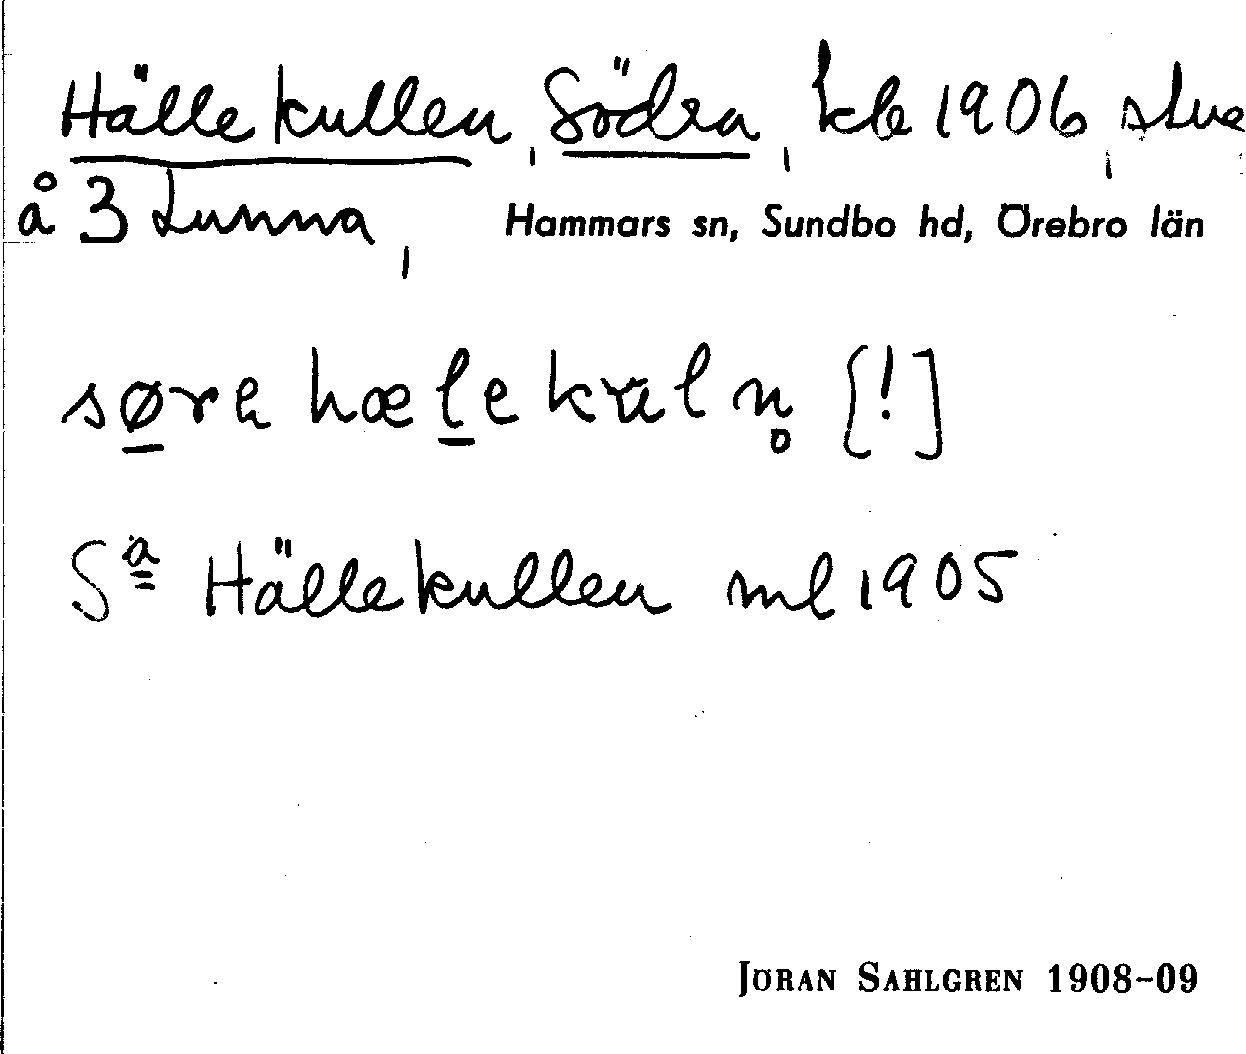 Hällekullen, Södra, kb 1906, stuva
å 3 Lunna, Hammars sn, Sundbo hd, Örebro län
søre hælekuln̥ [!]
Sª Hällekullen ml 1905
JÖRAN SAHLGREN 1908-09